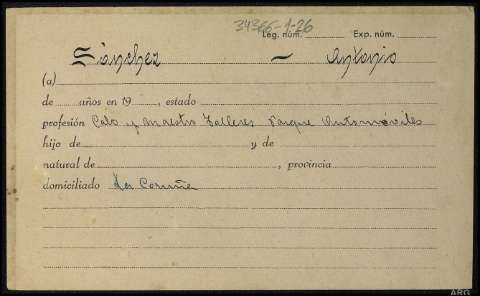 34366-1-26
Leg. núm. Exp. núm.
Sánchez — Antonio
(a)
de años en 19 , estado
profesión Cabo y Maestro Talleres Parque Automóviles
hijo de y de
natural de , provincia
domiciliado La Coruña
ARG